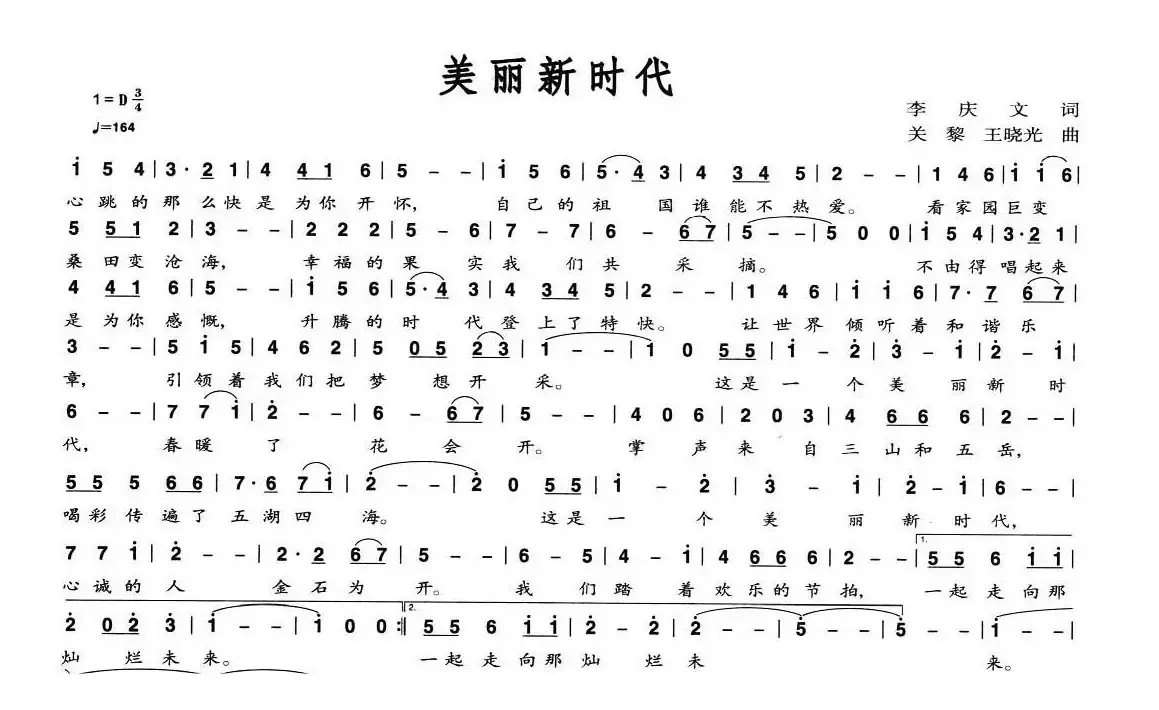 美丽新时代
1=D 3/4
♩=164
李庆文 词
关黎 王晓光 曲
i 5 4 | 3· 2 1 | 4 4 1 6 | 5 - - | i 5 6 | 5· 4 3 | 4 3 4 5 | 2 - - | 1 4 6 | i i 6 |
心跳的那么快是为你开怀, 自己的祖国谁能不热爱。 看家园巨变
5 5 1 2 | 3 - - | 2 2 2 | 5 - 6 | 7 - 7 | 6 - 6 7 | 5 - - | 5 0 0 | i 5 4 | 3· 2 1 |
桑田变沧海, 幸福的果实我们共采摘。 不由得唱起来
4 4 1 6 | 5 - - | i 5 6 | 5· 4 3 | 4 3 4 5 | 2 - - | 1 4 6 | i i 6 | 7· 7 6 7 |
是为你感慨, 升腾的时代登上了特快。 让世界倾听着和谐乐
3 - - | 5 i 5 | 4 6 2 | 5 0 5 2 3 | 1 - - | 1 0 5 5 | i - 2 | 3 - i | 2 - i |
章, 引领着我们把梦想开采。 这是一个美丽新时
6 - - | 7 7 i | 2 - - | 6 - 6 7 | 5 - - | 4 0 6 | 2 0 3 | 4 6 6 | 2 - - |
代, 春暖了花会开。 掌声来自三山和五岳,
5 5 5 6 6 | 7· 6 7 i | 2 - - | 2 0 5 5 | i - 2 | 3 - i | 2 - i | 6 - - |
喝彩传遍了五湖四海。 这是一个美丽新时代,
7 7 i | 2 - - | 2· 2 6 7 | 5 - - | 6 - 5 | 4 - i | 4 6 6 6 | 2 - - | 1. 5 5 6 i i |
心诚的人金石为开。 我们踏着欢乐的节拍, 一起走向那
2 0 2 3 | i - - | i 0 0 :‖ 2. 5 5 6 i i | 2 - 2 | 2 - 5 | 5 - 5 | i - |
灿烂未来。 一起走向那灿烂未来。